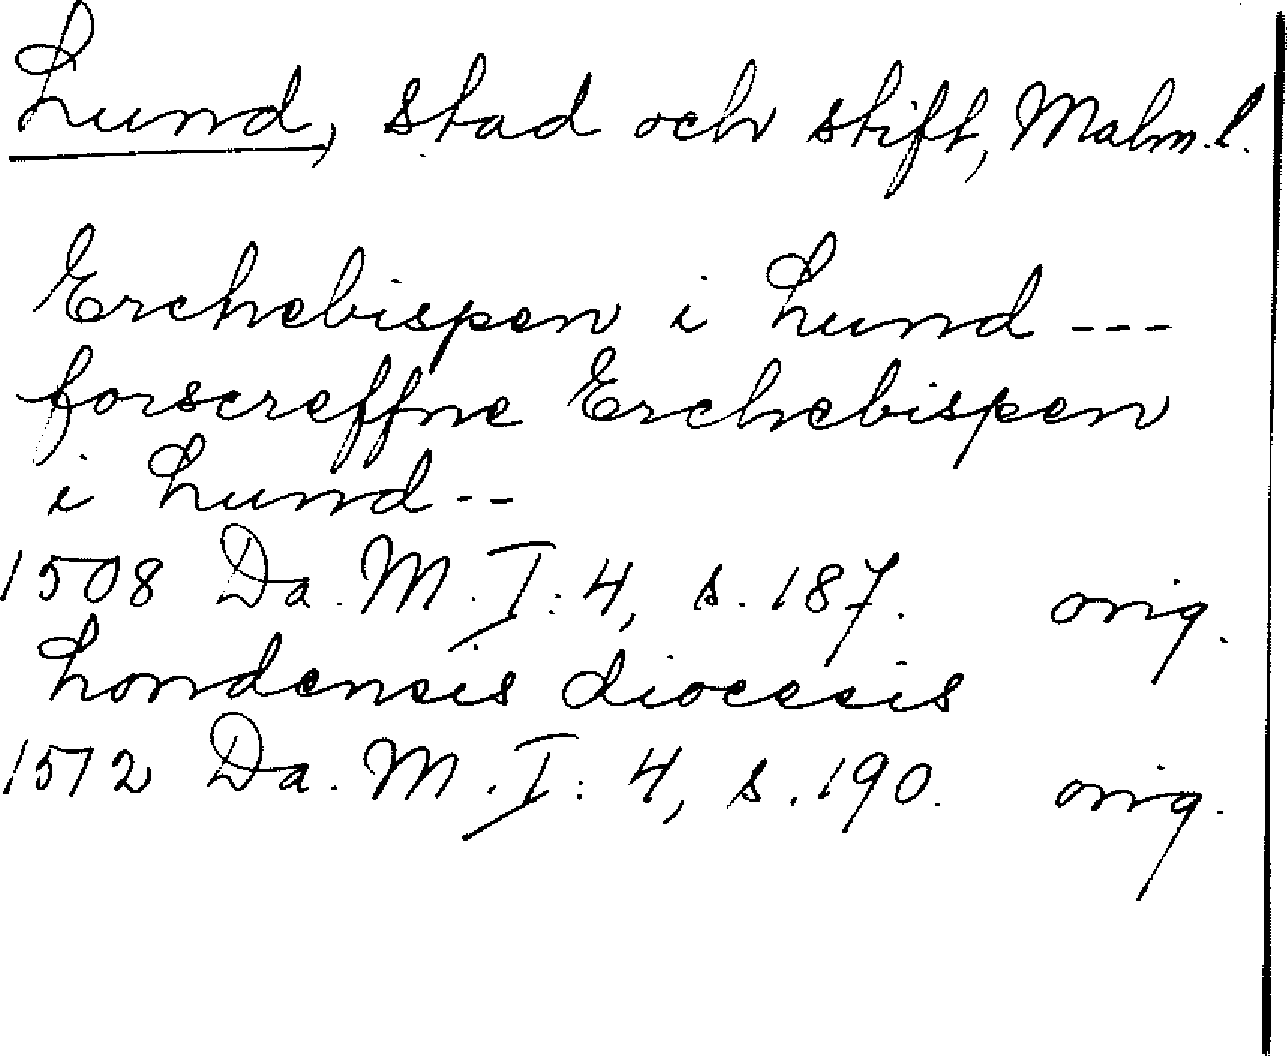 Lund, stad och stift, Malm.l.
Erchebispen i Lund ---
forscreffne Erchebispen
i Lund --
1508 Da. M. I: 4, s. 187. orig.
Londensis diocesis
1512 Da. M. I: 4, s. 190. orig.